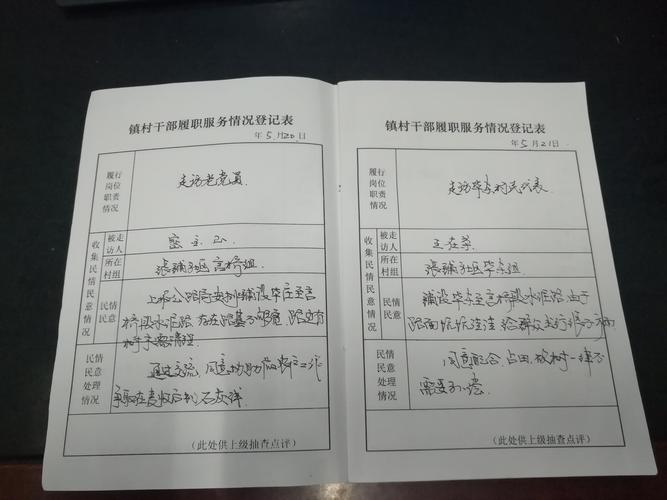 镇村干部履职服务情况登记表
年 5 月 20 日
履行岗位职责情况
走访老党员
收集民情民意情况
被走访人
所在村组
张铺社区高桥组
民情民意
上报公路局安排铺设毕庄至高
桥段水泥路 存在路基不够宽 路边有
树木需清理
民情民意处理情况
通过交流 同意协助做好工作
争取在麦收后
(此处供上级抽查点评)
镇村干部履职服务情况登记表
年 5 月 21 日
履行岗位职责情况
走访毕庄村民代表
收集民情民意情况
被走访人
王在
所在村组
张铺社区毕庄组
民情民意
铺设毕庄至高桥段水泥路 由于
路面坑坑洼洼 给群众出行
民情民意处理情况
同意配合 占田 砍树一律不
需要补偿
(此处供上级抽查点评)